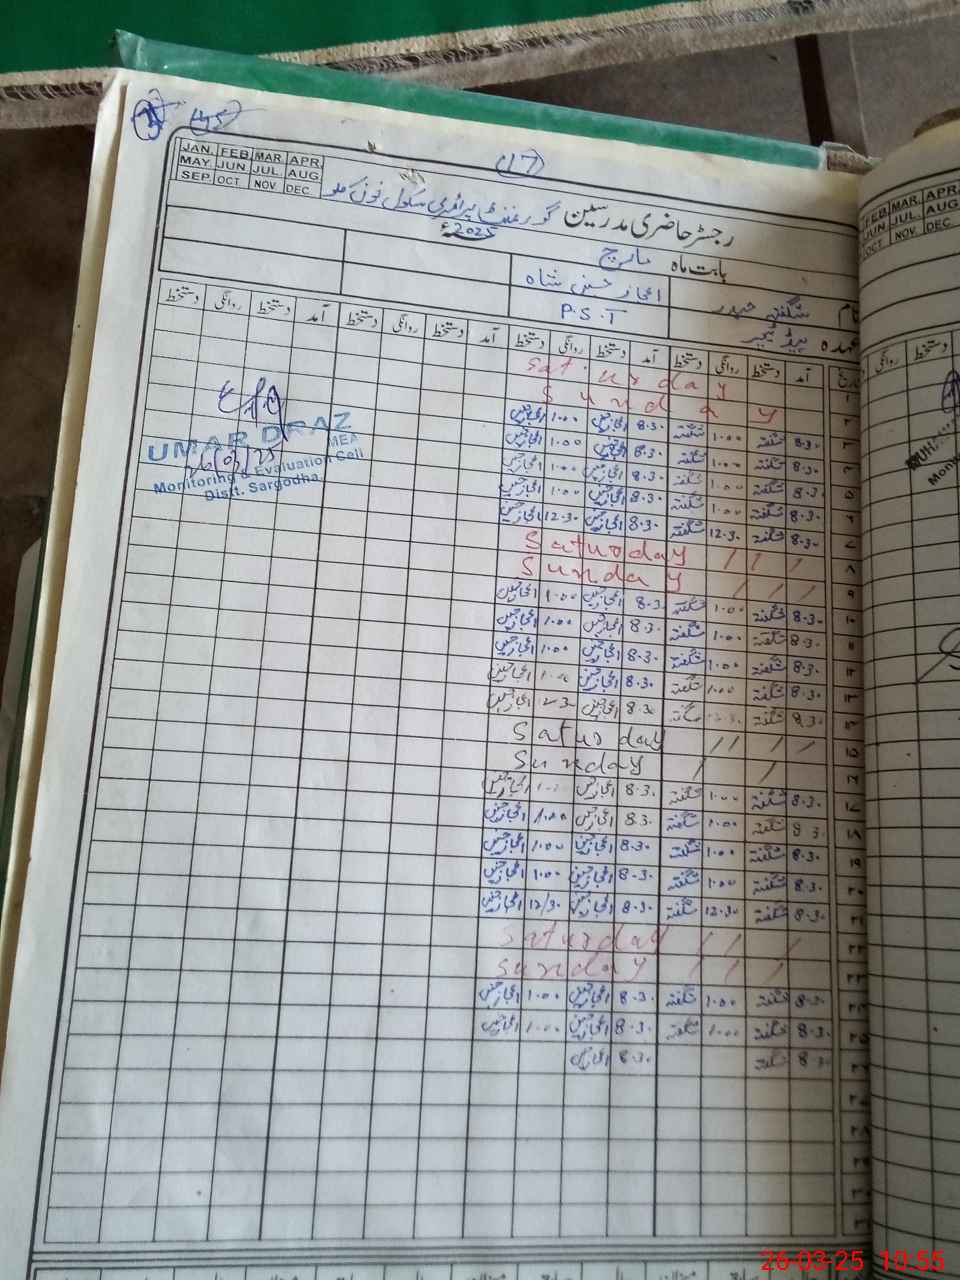 (17)
JAN. FEB MAR. APR.
MAY. JUN JUL. AUG.
SEP. OCT NOV. DEC.
رجسٹر حاضری مدرسین گورنمنٹ پرائمری سکول
2025ء
بابت ماہ مارچ
نام شگفتہ حیدر اعجاز حسین شاہ
عہدہ ہیڈ ٹیچر P.S.T
تاریخ آمد دستخط روانگی دستخط آمد دستخط روانگی دستخط آمد دستخط روانگی دستخط آمد دستخط روانگی دستخط
۱ Saturday
۲ Sunday
۳ 8.30 شگفتہ 1.00 شگفتہ 8.30 اعجاز حسین 1.00 اعجاز حسین
۴ 8.30 شگفتہ 1.00 شگفتہ 8.30 اعجاز حسین 1.00 اعجاز حسین
۵ 8.30 شگفتہ 1.00 شگفتہ 8.30 اعجاز حسین 1.00 اعجاز حسین
۶ 8.30 شگفتہ 1.00 شگفتہ 8.30 اعجاز حسین 1.00 اعجاز حسین
۷ 8.30 شگفتہ 12.30 شگفتہ 8.30 اعجاز حسین 12.30 اعجاز حسین
۸ Saturday / / /
۹ Sunday / / /
۱۰ 8.30 شگفتہ 1.00 شگفتہ 8.30 اعجاز حسین 1.00 اعجاز حسین
۱۱ 8.30 شگفتہ 1.00 شگفتہ 8.30 اعجاز حسین 1.00 اعجاز حسین
۱۲ 8.30 شگفتہ 1.00 شگفتہ 8.30 اعجاز حسین 1.00 اعجاز حسین
۱۳ 8.30 شگفتہ 1.00 شگفتہ 8.30 اعجاز حسین 1.00 اعجاز حسین
۱۴ 8.30 شگفتہ 12.30 شگفتہ 8.30 اعجاز حسین 12.30 اعجاز حسین
۱۵ Saturday / / / /
۱۶ Sunday / /
۱۷ 8.30 شگفتہ 1.00 شگفتہ 8.30 اعجاز حسین 1.00 اعجاز حسین
۱۸ 8.30 شگفتہ 1.00 شگفتہ 8.30 اعجاز حسین 1.00 اعجاز حسین
۱۹ 8.30 شگفتہ 1.00 شگفتہ 8.30 اعجاز حسین 1.00 اعجاز حسین
۲۰ 8.30 شگفتہ 1.00 شگفتہ 8.30 اعجاز حسین 1.00 اعجاز حسین
۲۱ 8.30 شگفتہ 12.30 شگفتہ 8.30 اعجاز حسین 12/30 اعجاز حسین
۲۲ Saturday / / /
۲۳ Sunday / / /
۲۴ 8.30 شگفتہ 1.00 شگفتہ 8.30 اعجاز حسین 1.00 اعجاز حسین
۲۵ 8.30 شگفتہ 1.00 شگفتہ 8.30 اعجاز حسین 1.00 اعجاز حسین
۲۶ 8.30 شگفتہ 8.30 اعجاز حسین
۲۷
۲۸
۲۹
۳۰
۳۱
UMAR DRAZ
MEA
26/03/25
Monitoring & Evaluation Cell
Distt. Sargodha.
FEB MAR. APR.
JUN JUL. AUG.
OCT NOV. DEC.
روانگی دستخط
26-03-25 10:55